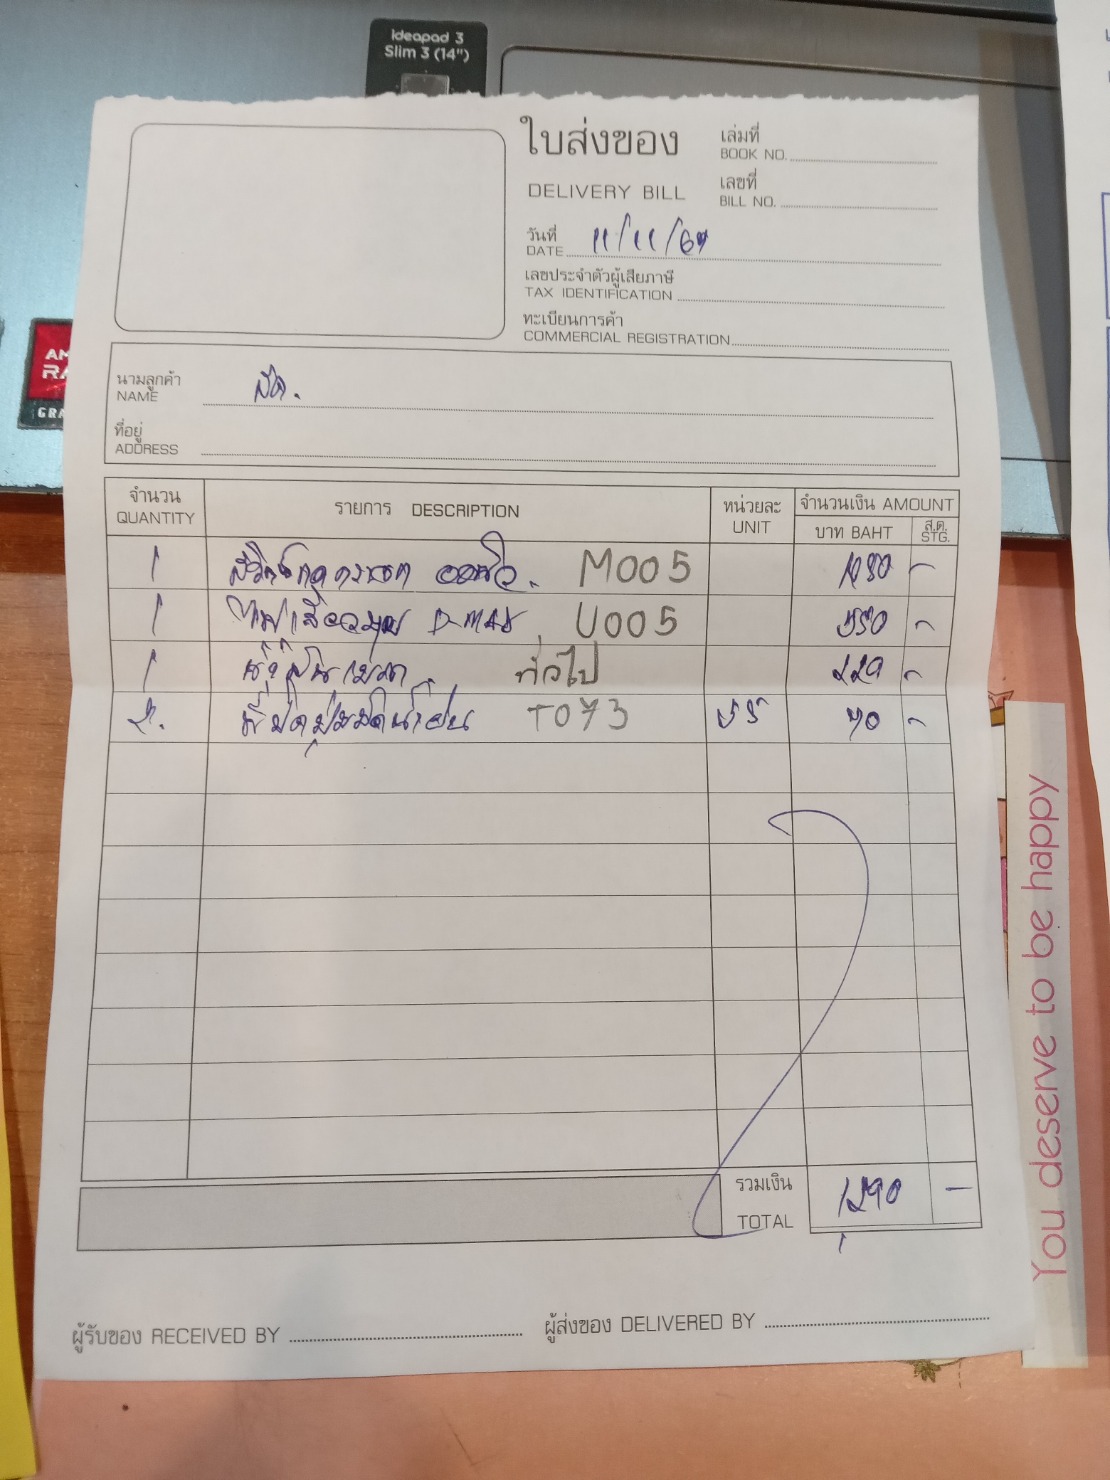 Ideapad 3
Slim 3 (14")
ใบส่งของ
DELIVERY BILL
เล่มที่
BOOK NO.
เลขที่
BILL NO.
วันที่
DATE 11/11/67
เลขประจำตัวผู้เสียภาษี
TAX IDENTIFICATION
ทะเบียนการค้า
COMMERCIAL REGISTRATION
นามลูกค้า
NAME
ที่อยู่
ADDRESS
จำนวน รายการ DESCRIPTION หน่วยละ จำนวนเงิน AMOUNT
QUANTITY UNIT บาท BAHT ส.ต. STG.
1 M005 -
1 D-MAX U005 -
1 ทั่วไป -
2. T073 70 -
รวมเงิน
TOTAL 1290 -
ผู้รับของ RECEIVED BY
ผู้ส่งของ DELIVERED BY
You deserve to be happy